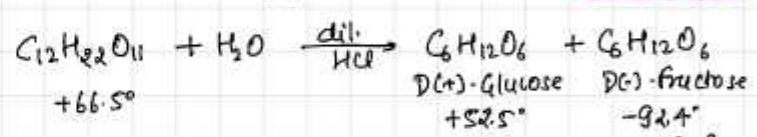 C12H22O11 + H2O dil. HCl → C6H12O6 + C6H12O6
D(+)-Glucose D(-)-fructose
+66.5° +52.5° -92.4°